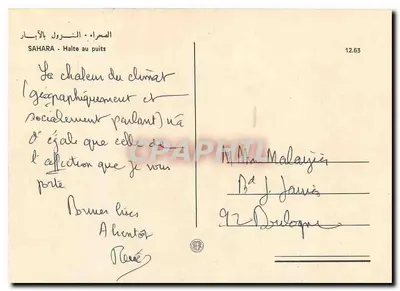 الصحراء - النزول بالآبار
SAHARA - Halte au puits
12.63
La chaleur du climat
(géographiquement et
socialement parlant) n'a
d'égale que celle de
l'affection que je vous
porte
Bonnes bises
A bientôt
René
Malaizies
Bd J. Jaurès
92 Boulogne